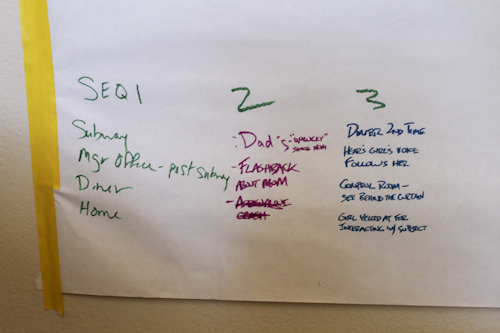 SEQ 1
Subway
Mgr Office - post subway
Diner
Home
2
- Dad's - "unlucky"
since mom
- FLASHBACK
ABOUT MOM
- ADRENALINE
CRASH
3
DINER 2ND TIME
HEARS GIRL'S VOICE
FOLLOWS HER
CONTROL ROOM -
SEE BEHIND THE CURTAIN
GIRL YELLED AT FOR
INTERACTING W/ SUBJECT